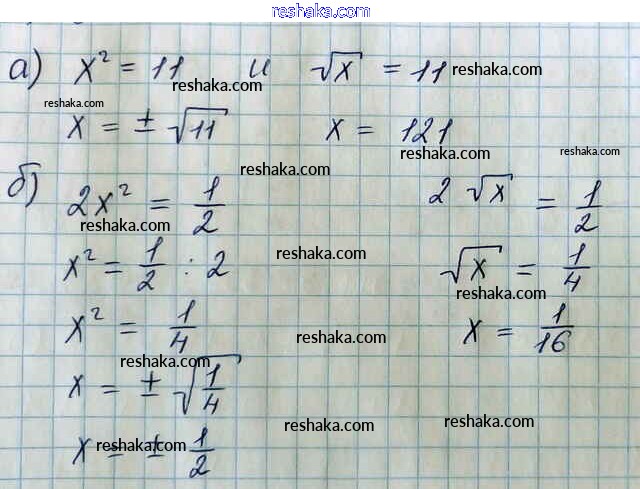 reshaka.com
а) x² = 11 и √x = 11 reshaka.com
reshaka.com
reshaka.com
x = ± √11 x = 121
reshaka.com
reshaka.com
reshaka.com
б) 2x² = 1/2 2 √x = 1/2
reshaka.com
x² = 1/2 : 2 √x = 1/4
reshaka.com
reshaka.com
x² = 1/4 x = 1/16
reshaka.com
reshaka.com
x = ± √1/4
reshaka.com
reshaka.com
x = ± 1/2
reshaka.com